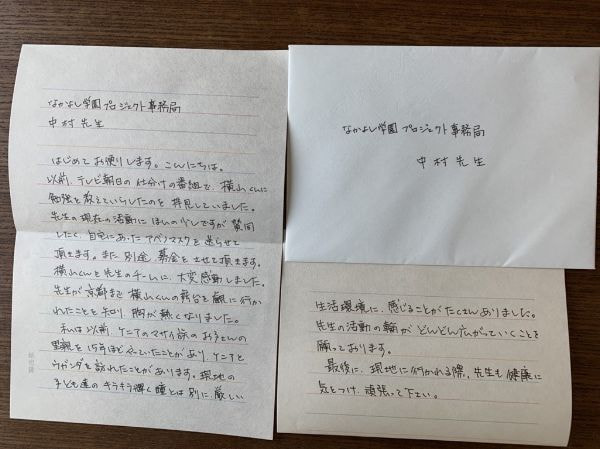 なかよし学園プロジェクト事務局
中村先生
はじめてお便りします。こんにちは。
以前、テレビ朝日の仕分けの番組で、横山くんに
勉強を教えていらしたのを拝見していました。
先生の現在の活動にほんの少しですが賛同
したく、自宅にあったアベノマスクを送らせて
頂きます。また別途、募金をさせて頂きます。
横山くんと先生のチームに、大変感動しました。
先生が京都まで横山くんの舞台を観に行か
れたことを知り、胸が熱くなりました。
私は以前、ケニアのマサイ族のお子さんの
里親を15年ほどやっていたことがあり、ケニアと
ウガンダを訪れたことがあります。現地の
子ども達のキラキラ輝く瞳とは別に、厳しい
なかよし学園プロジェクト事務局
中村先生
生活環境に、感じることがたくさんありました。
先生の活動の輪がどんどん広がっていくことを
願っております。
最後に、現地に行かれる際、先生も健康に
気をつけ、頑張って下さい。